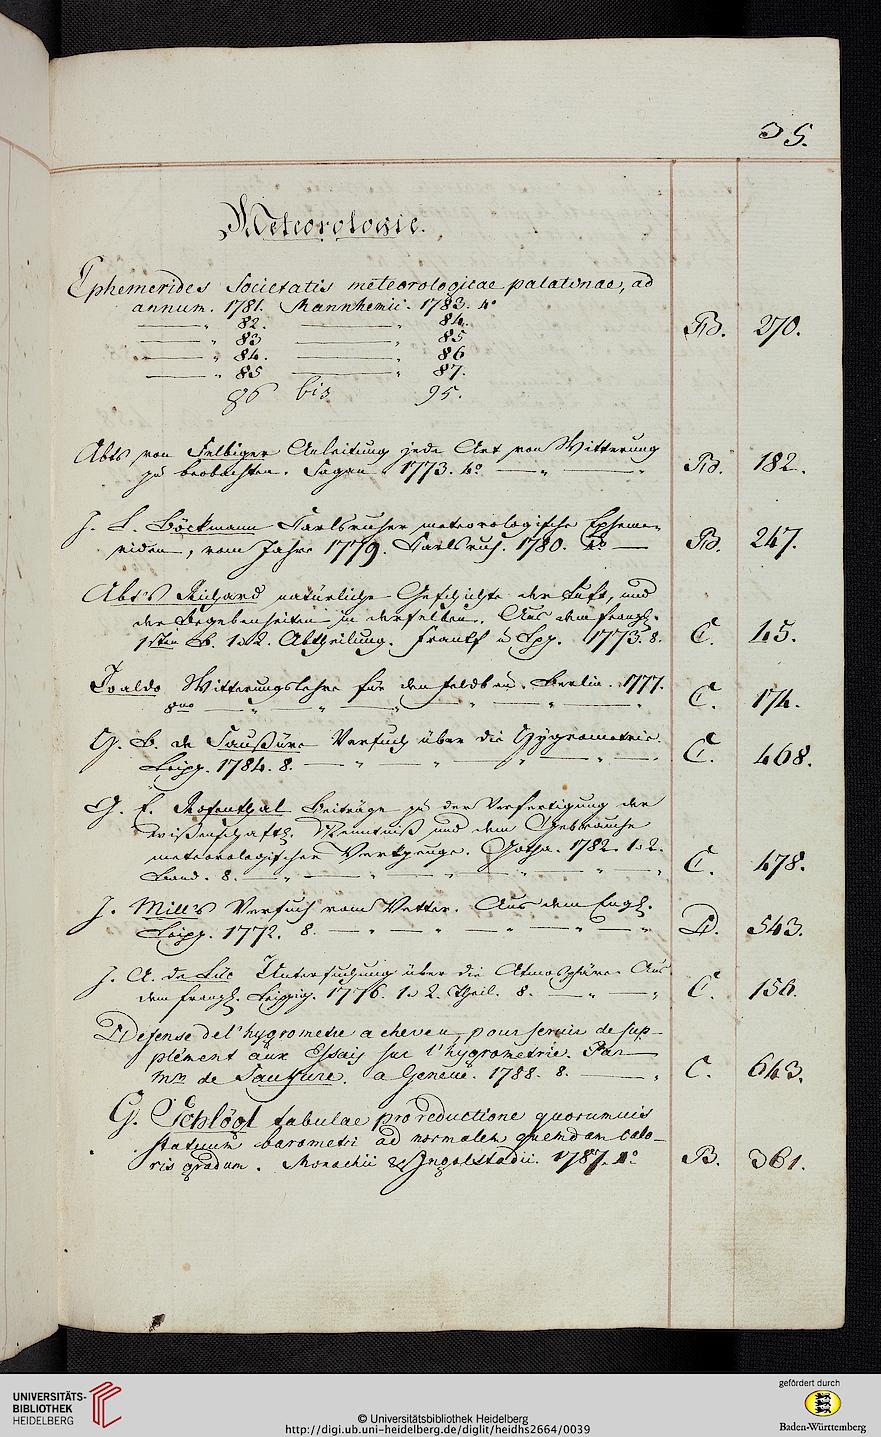 35.
Meteorologie.
Ephemerides Societatis meteorologicae palatinae, ad
annum. 1781. Mannhemii. 1783. 4°
— " 82. — " 84.
— " 83 — " 85
— " 84. — " 86
— " 85 — " 87.
86 bis 95.
B. 270.
Abts von Felbiger Anleitung jede Art von Witterung
zu beobachten. Sagan 1773. 4° — " —
B. 182.
J. L. Böckmann Karlsruher meteorologische Epheme-
riden, vom Jahre 1779. Karlsruh. 1780. 8° —
B. 247.
Abt's Richard natürliche Geschichte der Luft, und
der Begebenheiten in derselben. Aus dem franz.
1sten B. 1. u 2. Abtheilung. Frankf u Lpz. 1773. 8.
C. 45.
Toaldo Witterungslehre für den Feldbau. Berlin. 1777.
8vo — " — " — " — " — " — "
C. 174.
H. B. de Saußüre Versuch über die Hygrometrie.
Leipz. 1784. 8. — " — " — " — " — "
C. 468.
G. E. Rosenthal Beiträge zu der Verfertigung der
wißenschaftl. Kenntniß und dem Gebrauche
meteorologischer Werkzeuge. Gotha. 1782. 1. u 2.
Band. 8. — " — " — " — " — " — "
C. 478.
J. Mills Versuch vom Wetter. Aus dem Engl.
Leipz. 1772. 8. — " — " — " — " — "
D. 543.
J. A. de Luc Untersuchung über die Atmosphäre. Aus
dem franz. Leipzig. 1776. 1. u 2. Theil. 8. — " — "
C. 156.
Defense de l'hygrometre a cheveu, pour servir de sup-
plément aux Essais sur l'hygrometrie. Par
Mr. de Saussure. a Geneve. 1788. 8. — "
C. 643.
G. Schlögl tabulae pro reductione quorumvis
statuum barometri ad normalem quemdam calo-
ris gradum. Monachii & Ingolstadii. 1787. 4°
B. 361.
UNIVERSITÄTS-
BIBLIOTHEK
HEIDELBERG
© Universitätsbibliothek Heidelberg
http://digi.ub.uni-heidelberg.de/diglit/heidhs2664/0039
gefördert durch
Baden-Württemberg